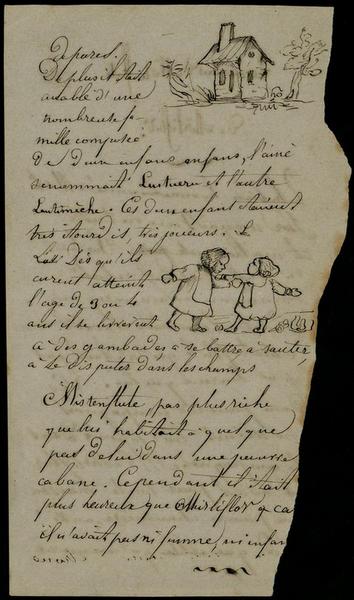 De plus il était
acablé d'une
nombreuse fa
mille composée
De deux enfans enfans, l'ainé
se nommait et l'autre
Ces deux enfant étaient
très étourdis, très joueurs. L
Dès qu'ils
eurent atteint
l'age de 3 ou 4
ans il se livrèrent
à des gambades, à se battre à sauter,
à se disputer dans les champs
Mistenflute, pas plus riche
que lui habitait à quelque
pas de lui dans une pauvre
cabane. Cependant il était
plus heureux que Mirliflor car
il n'avait pas ni femme, ni enfan